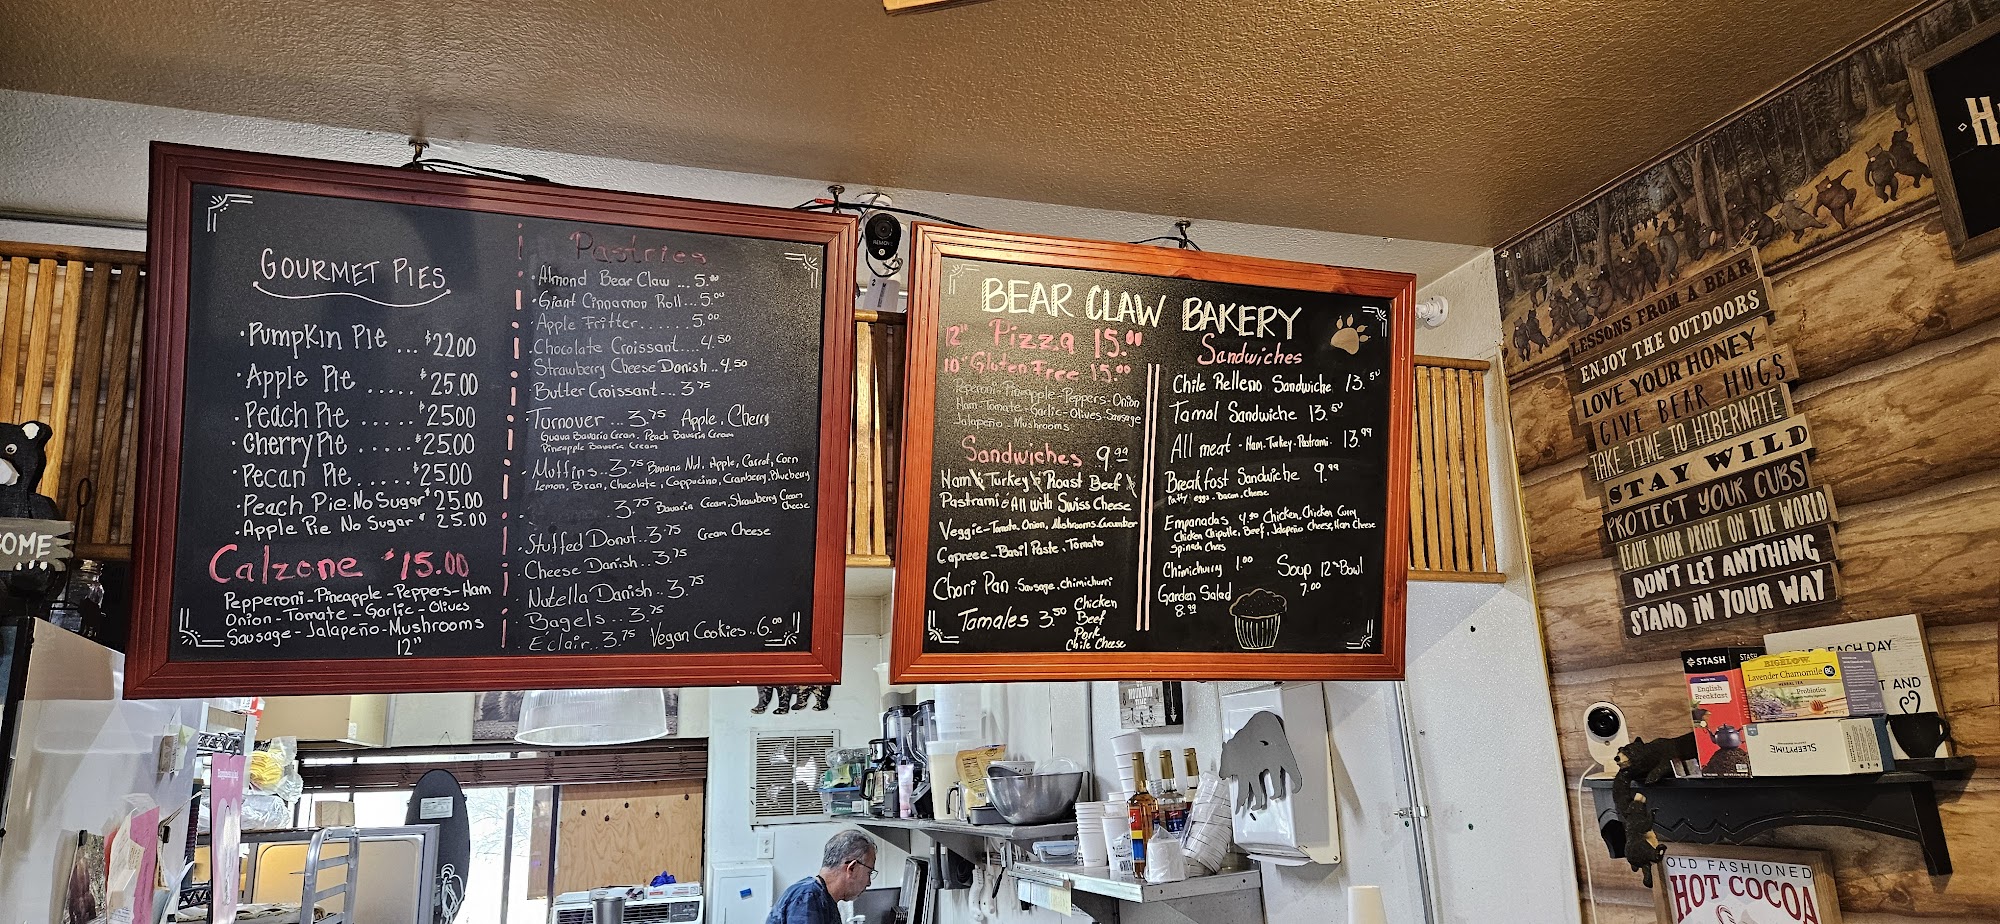 GOURMET PIES
• Pumpkin Pie ... $22.00
• Apple Pie ..... $25.00
• Peach Pie ..... $25.00
• Cherry Pie ..... $25.00
• Pecan Pie ..... $25.00
• Peach Pie No Sugar $25.00
• Apple Pie No Sugar $25.00
Calzone $15.00
Pepperoni - Pineapple - Peppers - Ham
Onion - Tomate - Garlic - Olives
Sausage - Jalapeño - Mushrooms
12"
Pastries
• Almond Bear Claw ... 5.00
• Giant Cinnamon Roll ... 5.00
• Apple Fritter ...... 5.00
• Chocolate Croissant .... 4.50
• Strawberry Cheese Danish .. 4.50
Butter Croissant .. 3.75
• Turnover ... 3.75 Apple, Cherry
Guava Bavaria Cream, Peach Bavaria Cream
Pineapple Bavaria Cream
• Muffins .. 3.75 Banana Nut, Apple, Carrot, Corn
Lemon, Bran, Chocolate, Cappucino, Cranberry, Blueberry
3.75 Bavaria Cream, Strawberry Cream
Cheese
• Stuffed Donut .. 3.75 Cream Cheese
• Cheese Danish .. 3.75
• Nutella Danish .. 3.75
• Bagels .. 3.75
• Eclair .. 3.75 Vegan Cookies .. 6.00
BEAR CLAW BAKERY
12" Pizza 15.00
10" Gluten Free 15.00
Peperoni - Pineapple - Peppers - Onion
Ham - Tomate - Garlic - Olives - Sausage
Jalapeño - Mushrooms
Sandwiches 9.99
Ham Turkey Roast Beef
Pastrami All With Swiss Cheese
Veggie - Tomato, Onion, Mushrooms, Cucumber
Caprese - Basil Paste, Tomato
Chori Pan - Sausage, chimichurri
Tamales 3.50 Chicken
Beef
Pork
Chile Cheese
Sandwiches
Chile Relleno Sandwiche 13.50
Tamal Sandwiche 13.50
All meat - Ham, Turkey, Pastrami. 13.99
Breakfast Sandwiche 9.99
Patty eggs - Bacon, Cheese
Empanadas Chicken, Chicken Curry
Chicken Chipotle, Beef, Jalapeño Cheese, Ham Cheese
Spinach
Chimichurry 1.00
Soup 12oz Bowl
7.00
Garden Salad
8.99
LESSONS FROM A BEAR
ENJOY THE OUTDOORS
LOVE YOUR HONEY
GIVE BEAR HUGS
TAKE TIME TO HIBERNATE
STAY WILD
PROTECT YOUR CUBS
LEAVE YOUR PRINT ON THE WORLD
DON'T LET ANYTHING
STAND IN YOUR WAY
OME
H
STASH
STASH
English
Breakfast
BIGELOW
Lavender Chamomile
Probiotics
EACH DAY
T AND
SLEEPYTIME
OLD FASHIONED
HOT COCOA